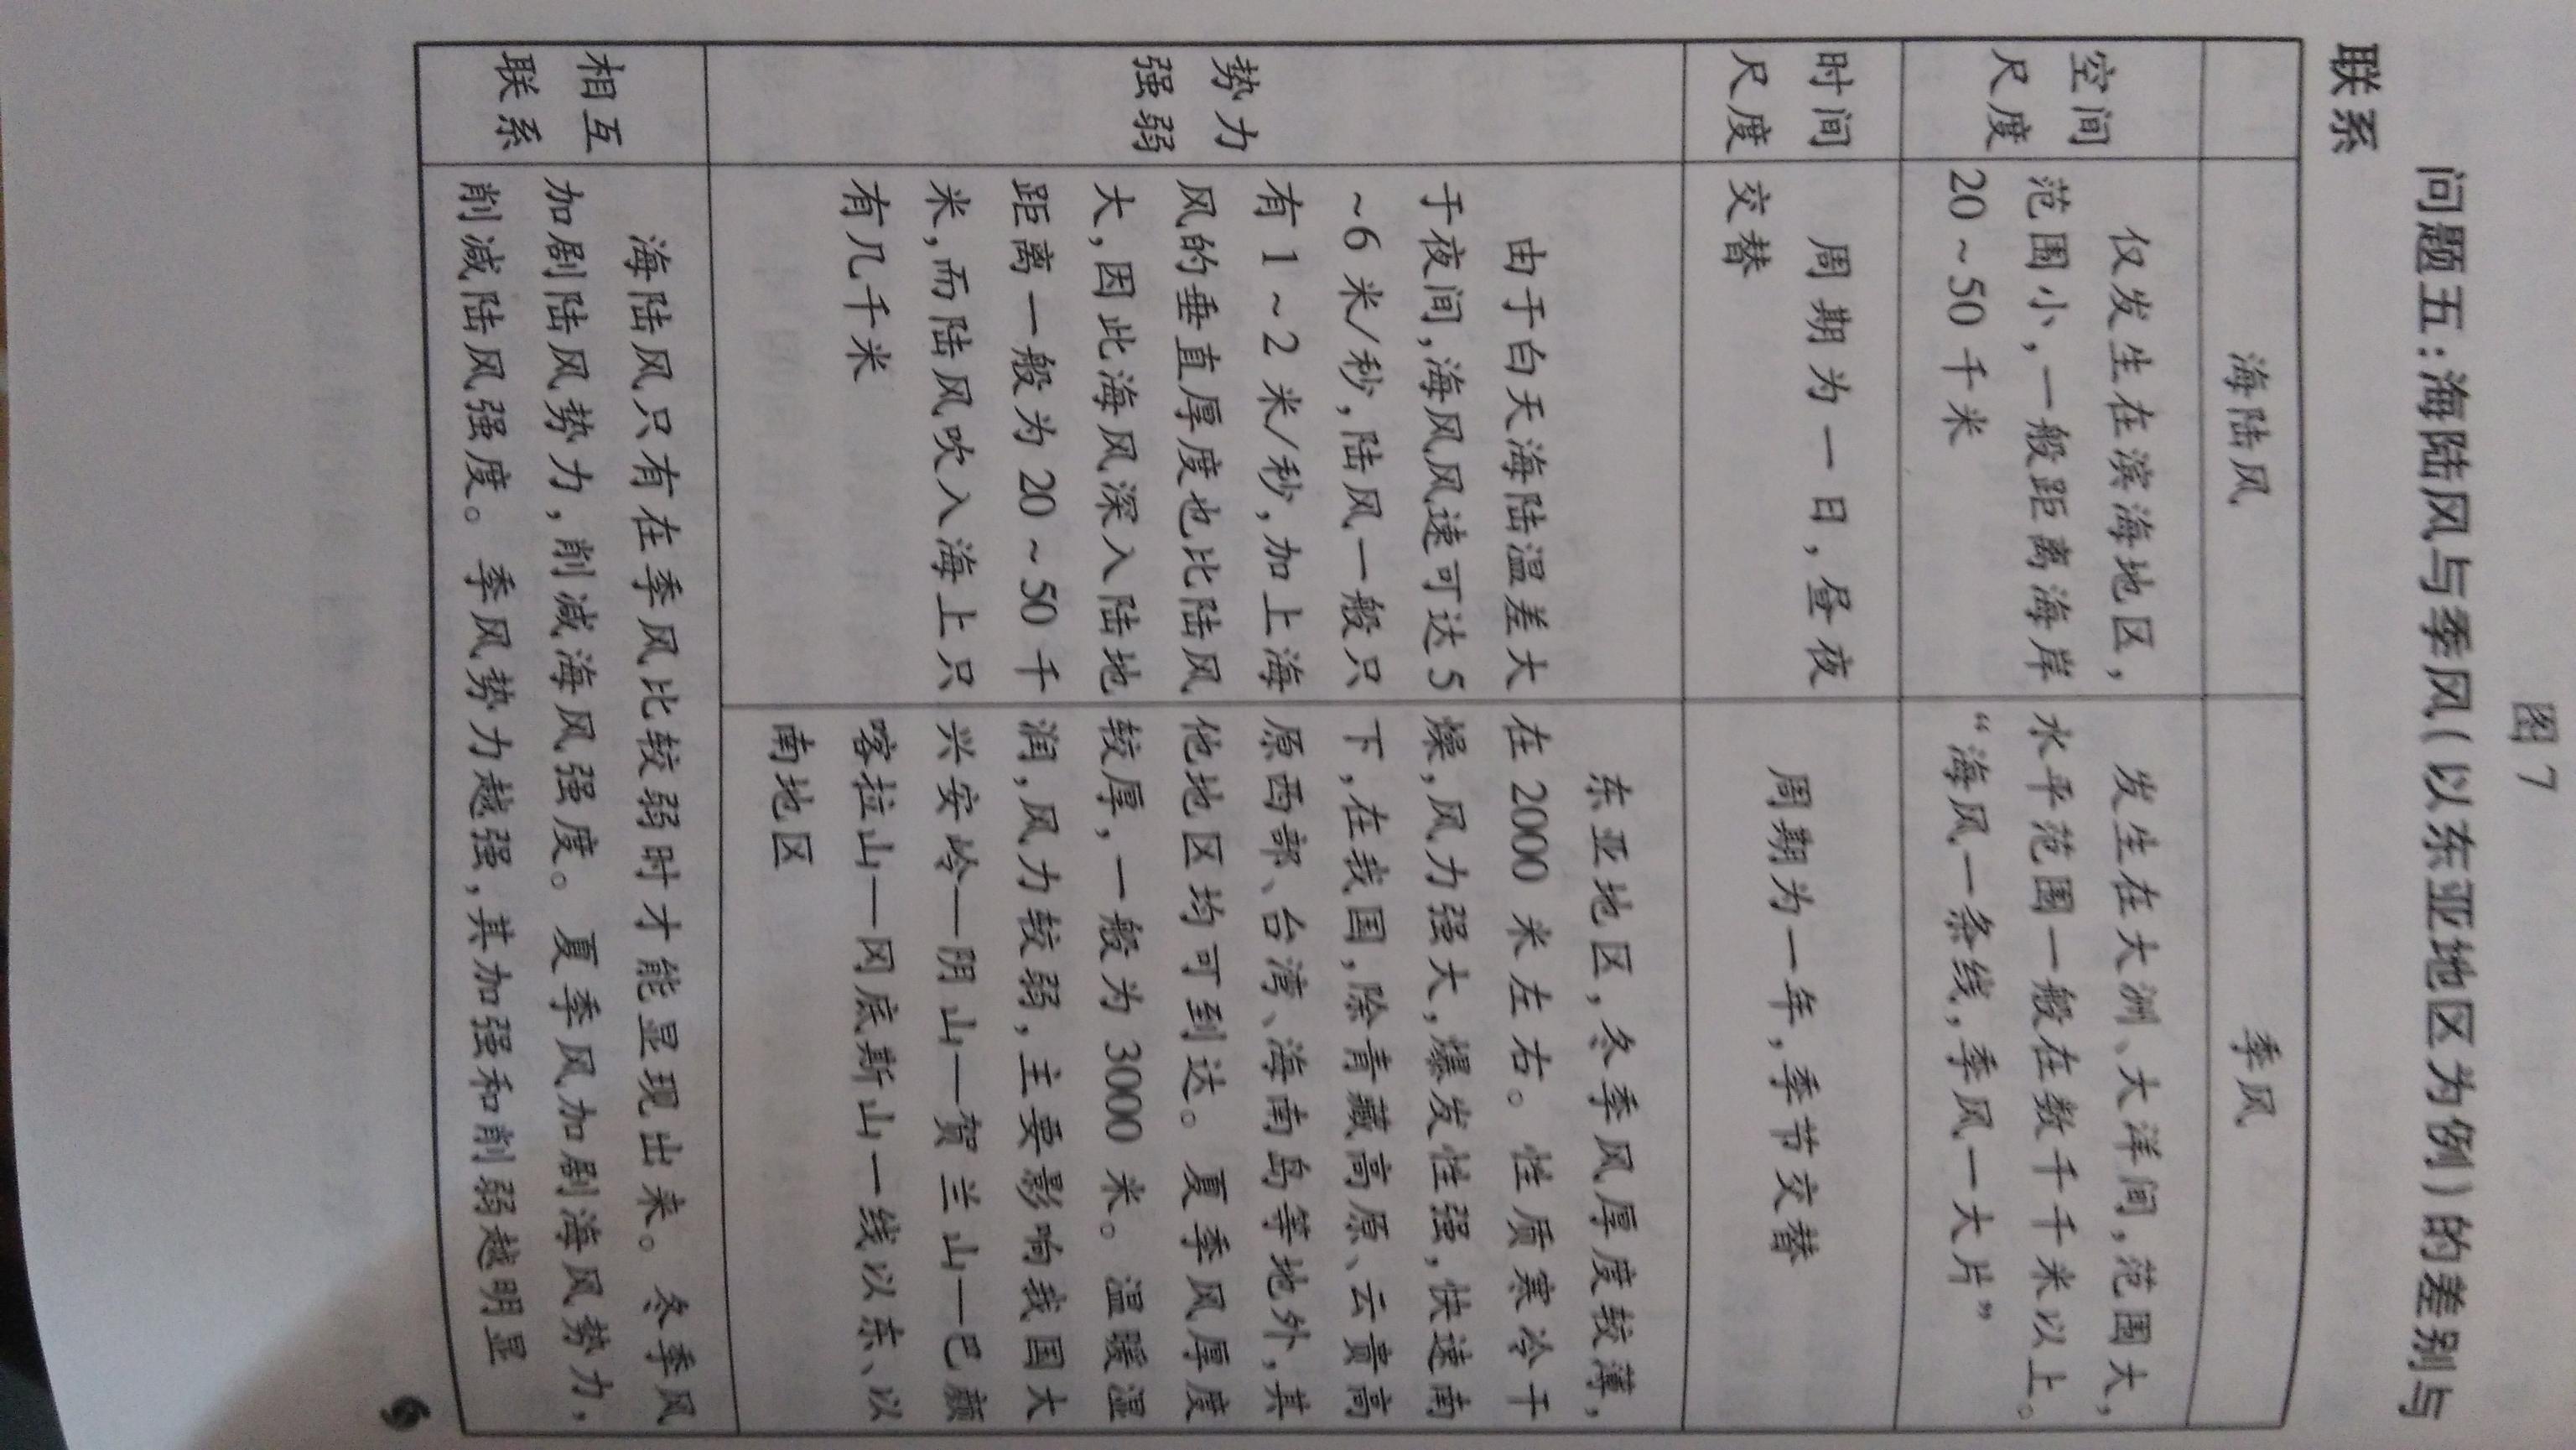 图 7
问题五:海陆风与季风(以东亚地区为例)的差别与
联系
海陆风
季风
空间
尺度
仅发生在滨海地区,
范围小,一般距离海岸
20~50千米
发生在大洲、大洋间,范围大,
水平范围一般在数千千米以上。
“海风一条线,季风一大片”
时间
尺度
周期为一日,昼夜
交替
周期为一年,季节交替
势力
强弱
由于白天海陆温差大
于夜间,海风风速可达5
~6米/秒,陆风一般只
有1~2米/秒,加上海
风的垂直厚度也比陆风
大,因此海风深入陆地
距离一般为20~50千
米,而陆风吹入海上只
有几千米
东亚地区,冬季风厚度较薄,
在2000米左右。性质寒冷干
燥,风力强大,爆发性强,快速南
下,在我国,除青藏高原、云贵高
原西部、台湾、海南岛等地外,其
他地区均可到达。夏季风厚度
较厚,一般为3000米。温暖湿
润,风力较弱,主要影响我国大
兴安岭—阴山—贺兰山—巴颜
喀拉山—冈底斯山一线以东、以
南地区
相互
联系
海陆风只有在季风比较弱时才能显现出来。冬季风
加剧陆风势力,削减海风强度。夏季风加剧海风势力,
削减陆风强度。季风势力越强,其加强和削弱越明显